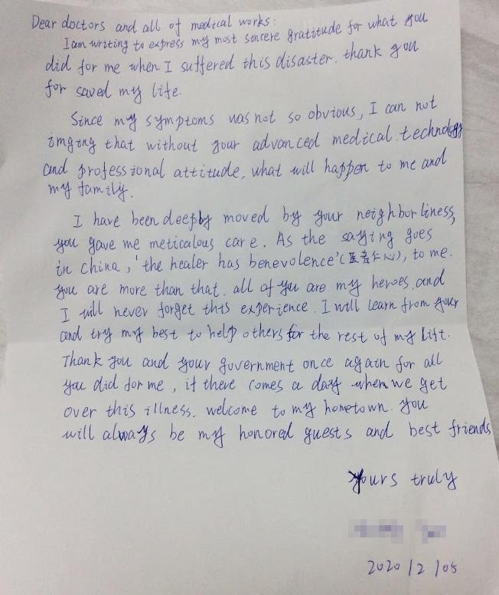 Dear doctors and all of medical works:
I am writing to express my most sincere gratitude for what you
did for me when I suffered this disaster. thank you
for saved my life.
Since my symptoms was not so obvious, I can not
imging that without your advanced medical technology
and professional attitude, what will happen to me and
my family.
I have been deeply moved by your neighborliness,
you gave me meticalous care. As the saying goes
in china, 'the healer has benevolence'(医者仁心), to me.
you are more than that. all of you are my heroes. and
I will never forget this experience. I will learn from your
and try my best to help others for the rest of my lift.
Thank you and your government once again for all
you did for me, if there comes a day when we get
over this illness. welcome to my hometown. you
will always be my honored guests and best friends
yours truly
2020/2/05